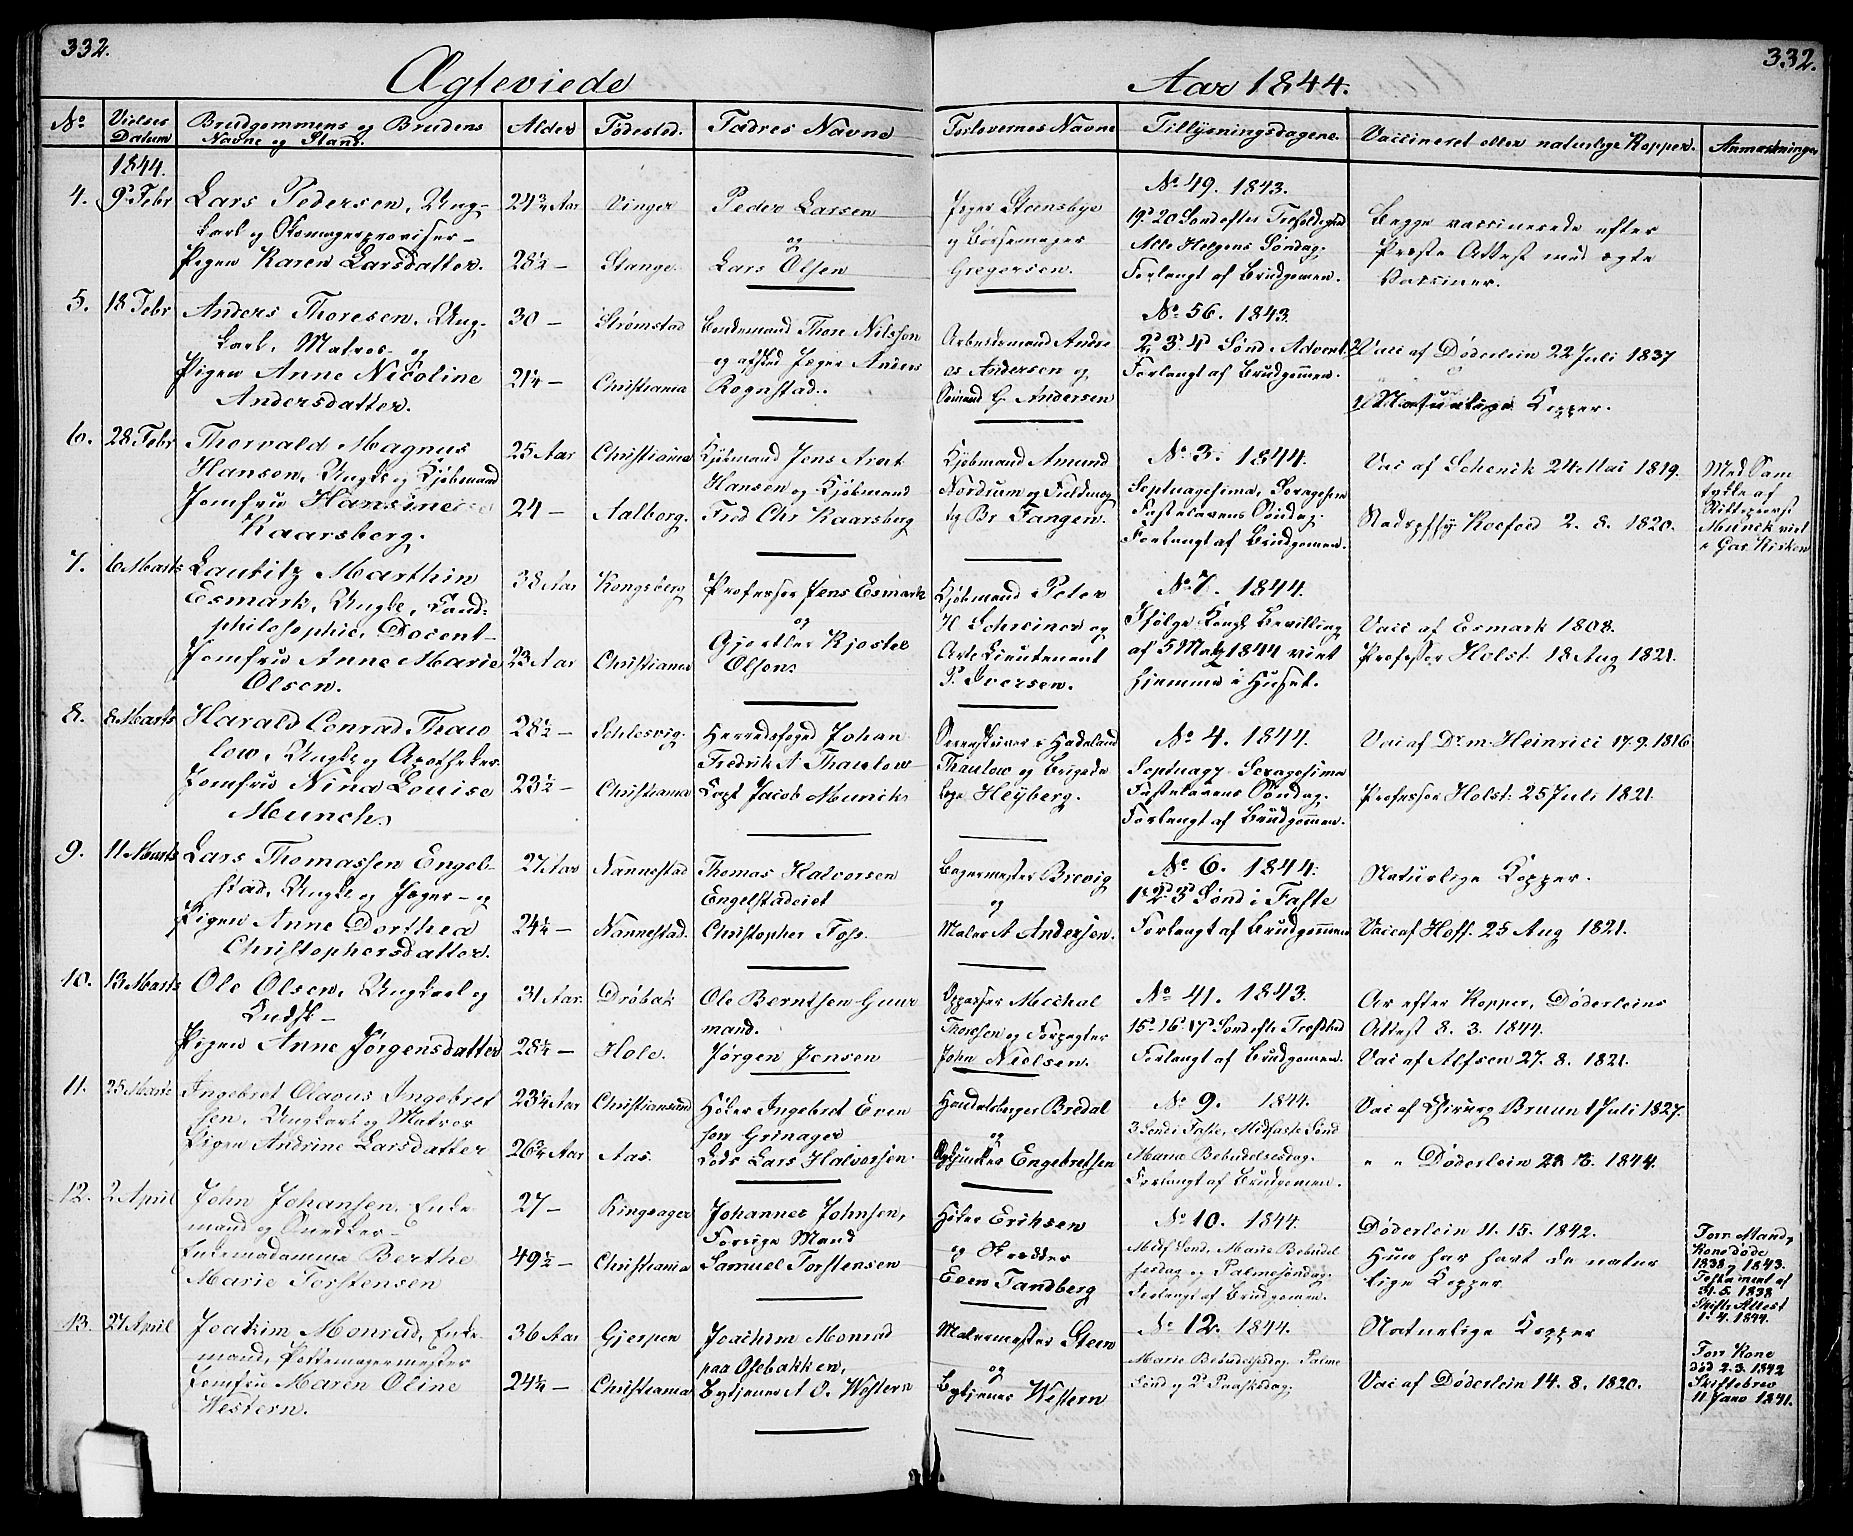 332.
332.
Ægteviede
Aar 1844.
No
Vielses Datum
Brudgommens og Brudens Navne og Stand.
Alder
Fødested.
Fædres Navne
Forlovernes Navne
Tillysningsdagene.
Vaccineret eller naturlige Kopper.
Anmærkninger
1844.
4. 9d Febr
Lars Pedersen, Ung-
karl og Skomagerprovisor_
Pigen Karen Larsdatter.
24 3/4 Aar
28 1/2 —
Vinger
Stange.
Peder Larsen
og
Lars Olsen
Jæger Steensbye
og Børsemager
Gregersen.
No 49. 1843.
19d 20 Sond efter Trefoldighed
Alle Helgens Søndag.
Forlangt af Brudgomen.
Begge vaccinerede efter
Præste Attest med ægte
Vacciner.
5. 18 Febr
Anders Thoresen, Ung-
karl, Matros og
Pigen Anne Nicoline
Andersdatter.
30 —
21 1/4 —
Strømstad
Christiania
Bondemand Thore Nilsson
og afskd Jæger Anders
Rognstad.
Arbeidsmand Andre
as Andersen og
Sømand H. Andersen
No 56. 1843.
2d 3d 4d Sønd i Advent.
Forlangt af Brudgomen.
2) Vacc af Døderlein 22 Juli 1837
1) Naturlige Kopper.
6. 28 Febr
Thorvald Magnus
Hansen, Ungk og Kjøbmand
Jomfru Hansine
Kaarsberg.
25 Aar
24 —
Christiania
Aalborg.
Kjøbmand Jens Arnt
Hansen og Kjøbmand
Fred Chr Kaarsberg
Kjøbmand Amund
Nordrum og Fuldmæg
tig Br Tangen.
No 3. 1844.
Septuagesima, Sexagesim
Fastelavens Søndag.
Forlangt af Brudgomen.
Vac af Schenck 24 Mai 1819.
Stadsphys Koefoed 2. 8. 1820.
Med Sam
tykke af
Stiftsprovst
Munck viet
i Gar. Kirken
7. 6 Marts
Lauritz Marthin
Esmark, Ungk, Cand.
philosophiæ, Docent
Jomfru Anne Marie
Olsen.
38 Aar
23 Aar
Kongsberg
Christiania
Professor Jens Esmark
og
Gjørtler Kjøstel
Olsen.
Kjøbmand Peter
H Schreiner og
Artl Lieutenant
P. Iversen.
No 7. 1844.
Ifølge Kongl Bevilling
af 5 Marts 1844 viet
hjemme i Huset.
Vacc af Esmark 1808.
Professor Holst 18 Aug 1821.
8. 8 Marts
Harald Conrad Thau
low, Ungk og Apotheker
Jomfru Nina Louise
Munch.
28 1/2 —
23 1/2 —
Schlesvig.
Christiania
Herredsfoged Johan
Fredrik A Thaulow
Capt Jacob Munch.
Sorenskriver i Hadeland
Thaulow og Brigade
læge Heyberg.
No 4. 1844.
Septuag, Sexagesima
Fastelavens Søndag.
Forlangt af Brudgomen.
Vac af Dr m. Heinrici 17. 9. 1816
Professor Holst 25 Juli 1821.
9. 11 Marts
Lars Thomassen Engel-
stad, Ungk og Jæger — og
Pigen Anne Dorthea
Christophersdatter.
27 Aar
24 1/2 —
Nannestad
Nannestad.
Thomas Halvorsen
Engelstadeiet
Christopher Foss.
Bagermester Brevig
og
Maler A Andersen.
No 6. 1844.
1d 2d 3d Sønd i Faste
Forlangt af Brudgommen
Naturlige Kopper.
Vac af Hoff. 25 Aug 1821.
10. 13 Marts
Ole Olsen, Ungkarl og
Kudsk —
Pigen Anne Jørgensdatter
31 Aar.
28 1/4 —
Drøbak
Hole.
Ole Berntsen Guur
mand.
Jørgen Jensen
Opgasser Michal
Thoresen og Forpagter
John Nielsen.
No 41. 1843.
15d 16d 17d Sond efter Trefkted
Forlangt af Brudgomen.
Ar efter Kopper, Døderleins
Attest 8. 3. 1844.
Vac af Alfsen 27. 8. 1821.
11. 25 Marts
Ingebret Olavus Ingebret
sen, Ungkarl og Matros
Pigen Andrine Larsdatter
23 1/4 Aar
26 3/4 Aar
Christiansund
Aas.
Høker Ingebret Even
sen Grinager
Lods Lars Halvorsen.
Handelsborger Bredal
og
Engebretsen
No 9. 1844.
3 Send i Faste, Midfaste Sønd
Maria Bebudelsesdag.
Forlangt af Brudgomen.
Vac af Chirurg Bruun 1 Juli 1827.
" " Døderlein 1844.
12. 2 April
John Johansen, Enke
mand og Snedker
Enkemadamme Berthe
Marie Torstensen
27 —
49 1/2 —
Ringsager
Christiania
Johannes Johnsen,
Forrige Mand
Samuel Torstensen
Høker Eriksen
og Skrædder
Even Tandberg
No 10. 1844.
Midf Sønd, Marie Bebudel
sesdag og Palmesøndag.
Forlangt af Brudgomen.
Døderlein 11. 15. 1842.
Hun har havt de natur
lige Kopper
Forr. Mand og
Kone døde
1838 og 1843.
Testament af
31. 5. 1838
Skifte Attest
1. 4. 1844.
13. 27 April
Joakim Monrad, Enke
mand, Pottemagermester
Jomfru Maren Oline
Western.
36 Aar
24 1/4 —
Gjerpen
Christiania
Joachim Monrad
paa Osebakken,
Bytjener A O. Western
Malermester Steen
og
Bytjener Western
No 12. 1844.
Marie Bebudelsesdag, Palme
Sønd og 2d Paaskedag.
Naturlige Kopper
Vac af Døderlein 14. 8. 1820.
Forr Kone
død 2. 3. 1842
Skiftebrev
11 Janr 1841.